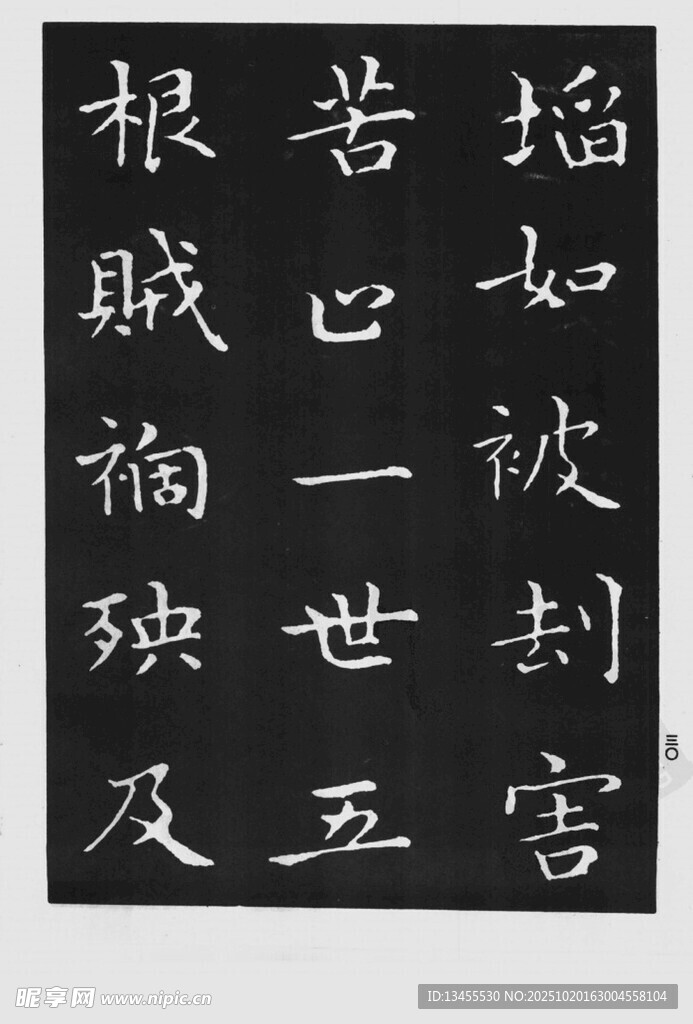 埳如被刦害
苦止一世五
根賊禍殃及
三〇
昵享网 www.nipic.cn
ID:13455530 NO:20251020163004558104